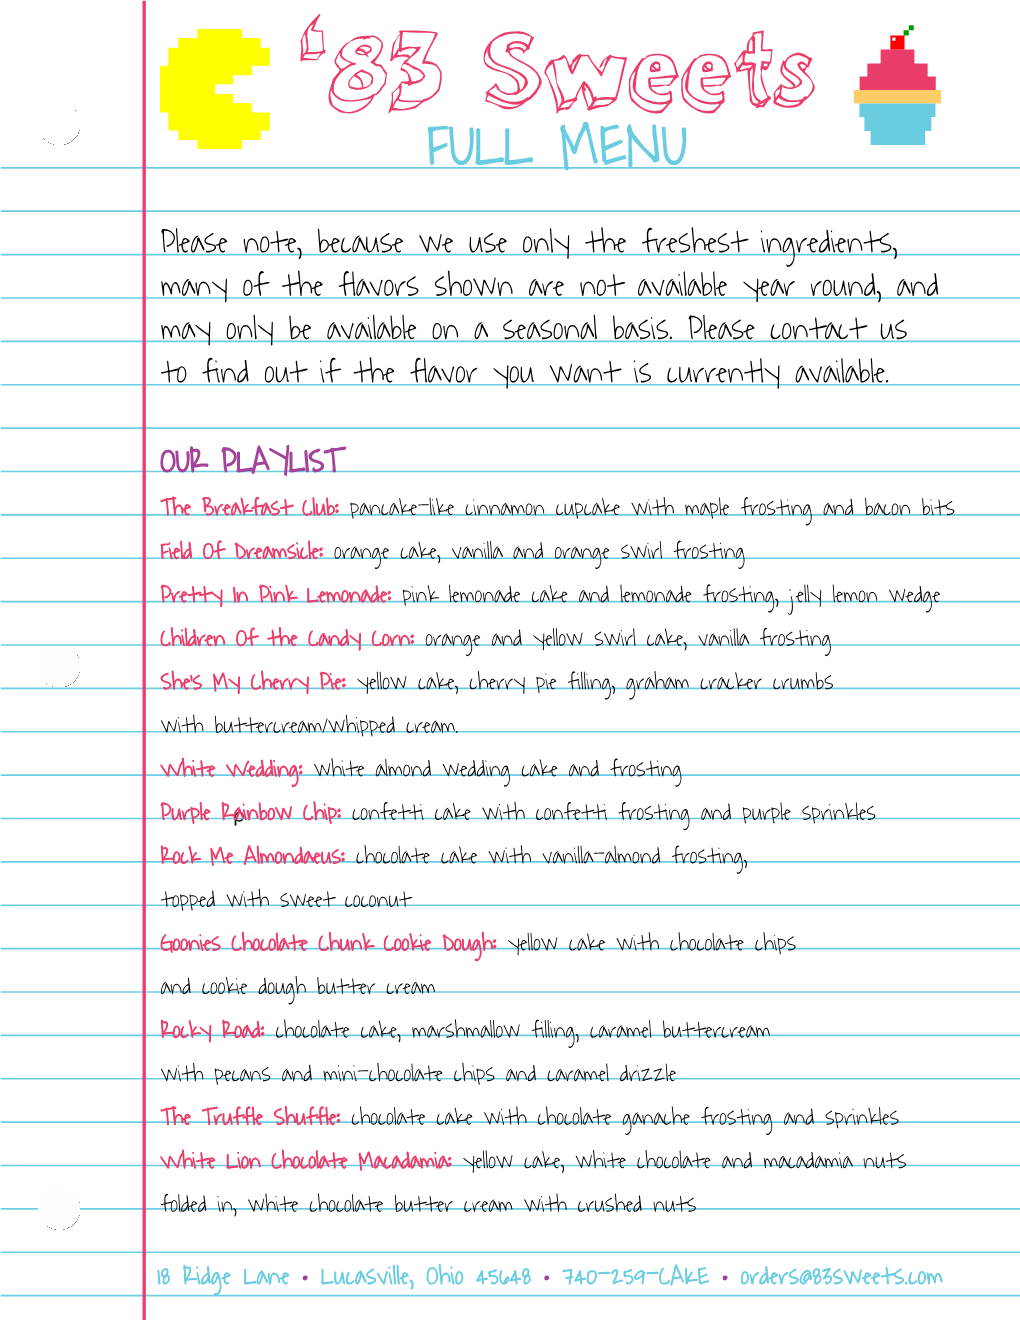 ‘83 Sweets
FULL MENU
Please note, because we use only the freshest ingredients,
many of the flavors shown are not available year round, and
may only be available on a seasonal basis. Please contact us
to find out if the flavor you want is currently available.
OUR PLAYLIST
The Breakfast Club: pancake-like cinnamon cupcake with maple frosting and bacon bits
Field Of Dreamsicle: orange cake, vanilla and orange swirl frosting
Pretty In Pink Lemonade: pink lemonade cake and lemonade frosting, jelly lemon wedge
Children Of the Candy Corn: orange and yellow swirl cake, vanilla frosting
She's My Cherry Pie: yellow cake, cherry pie filling, graham cracker crumbs
with buttercream/whipped cream.
White Wedding: white almond wedding cake and frosting
Purple Rainbow Chip: confetti cake with confetti frosting and purple sprinkles
Rock Me Almondaeus: chocolate cake with vanilla-almond frosting,
topped with sweet coconut
Goonies Chocolate Chunk Cookie Dough: yellow cake with chocolate chips
and cookie dough butter cream
Rocky Road: chocolate cake, marshmallow filling, caramel buttercream
with pecans and mini-chocolate chips and caramel drizzle
The Truffle Shuffle: chocolate cake with chocolate ganache frosting and sprinkles
White Lion Chocolate Macadamia: yellow cake, white chocolate and macadamia nuts
folded in, white chocolate butter cream with crushed nuts
18 Ridge Lane • Lucasville, Ohio 45648 • 740-259-CAKE • orders@83sweets.com